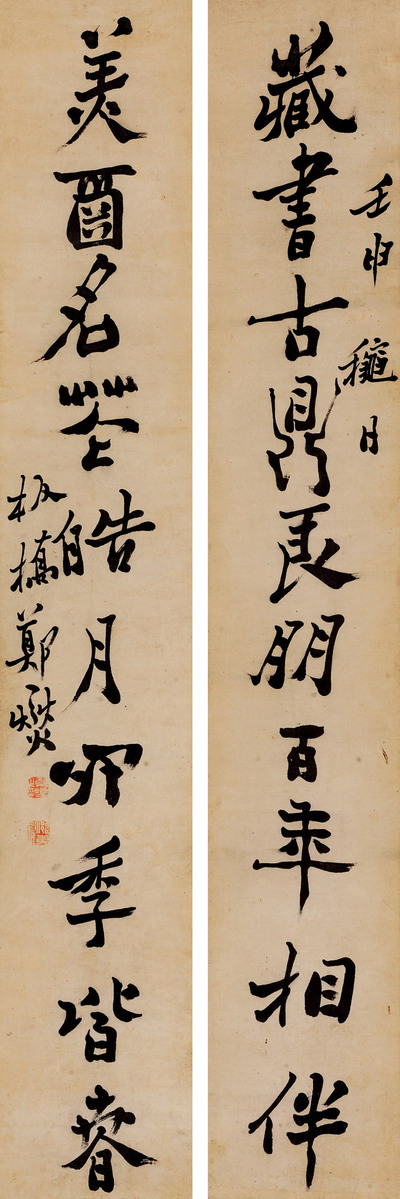 藏書古鼎良朋百年相伴
壬申穐月
美名皓月四季皆春
板橋鄭燮